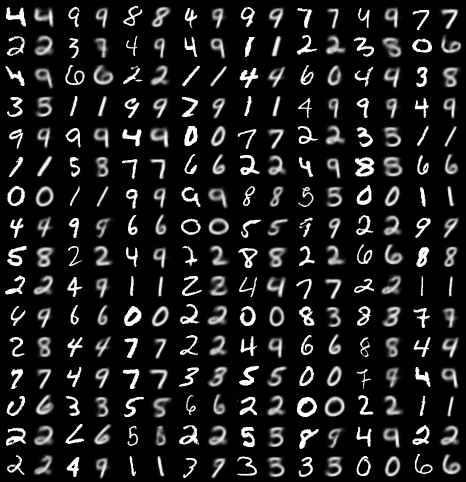 4 4 9 9 8 8 4 9 9 9 7 7 4 9 7 7
2 2 3 7 4 9 4 9 1 1 2 2 3 8 0 6
4 9 6 6 2 2 1 1 4 4 6 0 4 9 3 8
3 5 1 1 9 9 7 9 1 1 4 9 9 9 4 9
9 9 9 9 4 9 0 0 7 7 2 2 3 5 1 1
1 1 5 8 7 7 6 6 2 2 4 9 8 5 6 6
0 0 1 1 9 9 9 9 8 8 5 5 0 0 1 1
4 4 9 9 6 6 0 0 5 5 9 9 2 2 9 9
5 8 2 2 4 9 2 2 8 8 2 2 6 6 8 8
2 2 4 9 1 1 2 2 4 4 7 7 2 2 1 1
4 9 6 6 0 0 2 2 0 0 8 3 8 3 7 7
2 8 4 4 7 7 2 2 4 9 6 6 8 8 4 9
7 7 4 9 7 7 3 3 5 5 0 0 7 9 4 9
0 6 3 3 5 5 6 6 2 2 0 0 2 2 1 1
2 2 6 6 5 8 2 2 5 5 8 9 4 9 2 2
2 2 4 9 1 1 3 9 3 3 3 5 0 0 6 6